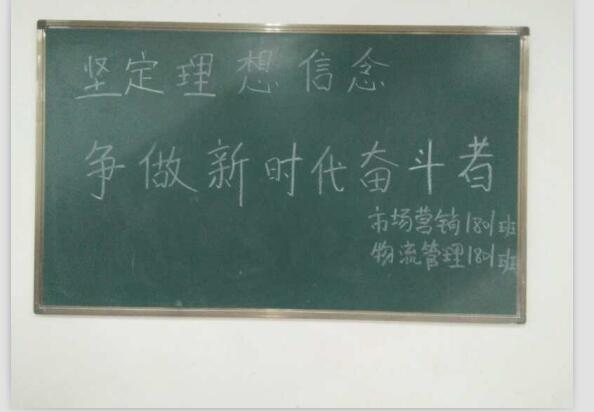 坚定理想信念
争做新时代奋斗者
市场营销1801班
物流管理1801班